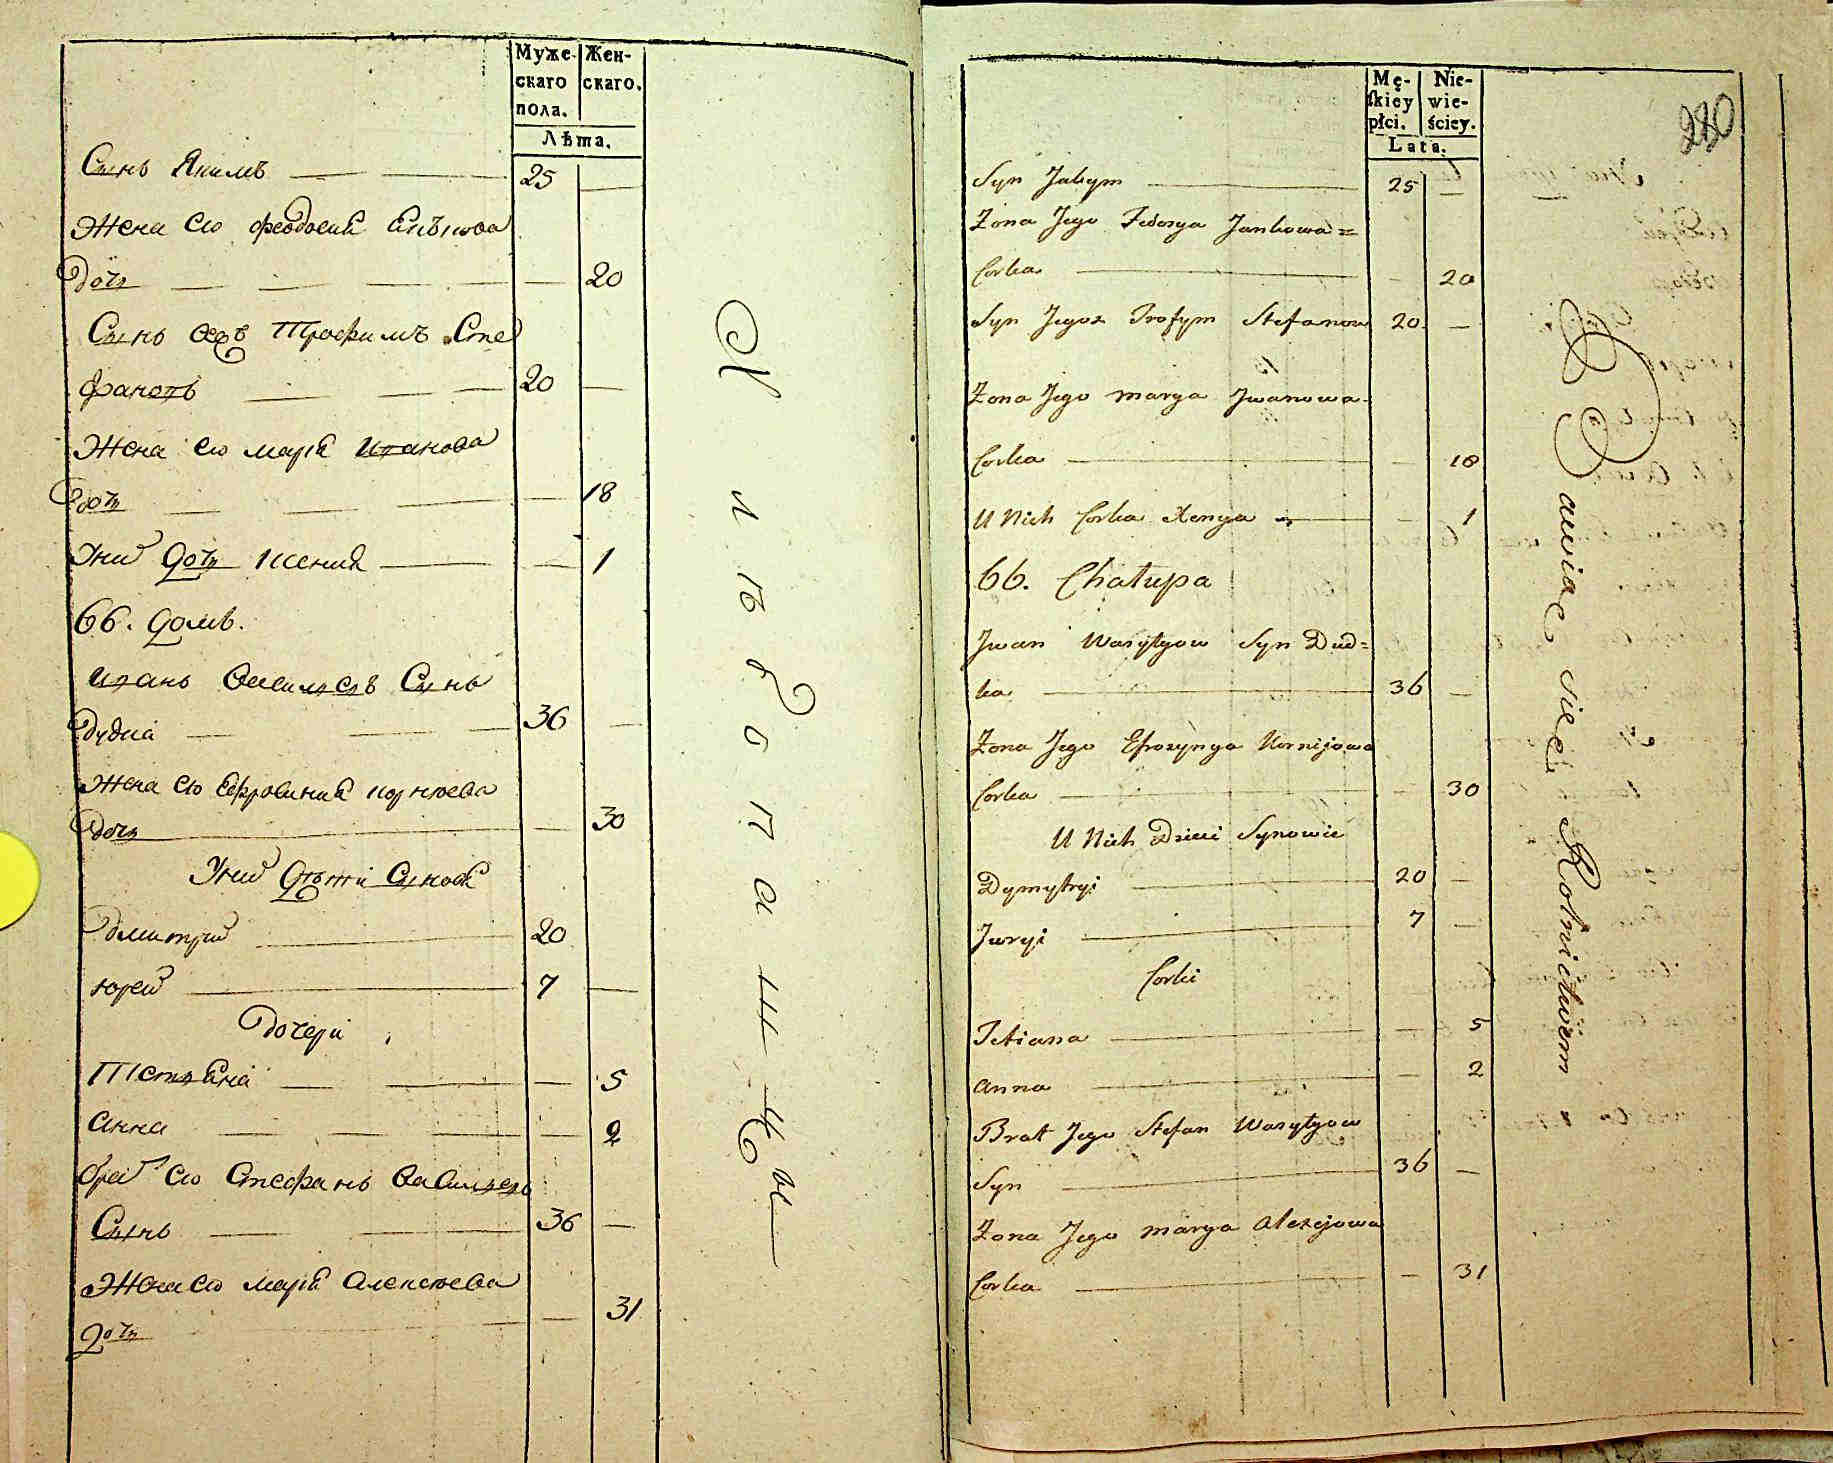 Муже- Жен-
скаго скаго.
пола.
Лѣта.
Сынъ Якимъ 25
Жена его Феодосия Янкова
дочь 20
Сынъ его Трофимъ Сте
фановъ 20
Жена его Марія Иванова
дочь 18
У них дочь Ксения 1
66. домъ.
Иванъ Васильевъ Сынъ
Дудка 36
Жена его Ефросиния Корнеева
дочь 30
У них дѣти Сыновя
Дмитрий 20
Юрей 7
дочери
Тетяна 5
Анна 2
брат его Стефанъ Васильевъ
Сынъ 36
Жена его Марія Алексеева
дочь 31
Хлѣбопашцы
Mę- Nie-
skiey wie-
płci. ściey.
Lata.
280
Syn Jakym 25
Żona Jego Fedosya Jankowa=
Corka 20
Syn Jegoż Trofym Stefanow 20
Żona Jego Marya Jwanowa
Corka 18
U Nich Corka Xenya 1
66. Chałupa
Jwan Wasylyow Syn Dud=
ka 36
Żona Jego Efrosynya Kornijowa
Corka 30
U Nich Dzieci Synowie
Dymytryi 20
Juryi 7
Corki
Tetiana 5
Anna 2
Brat Jego Stefan Wasylyow
Syn 36
Żona Jego Marya Alexijowa
Corka 31
Bawiąc się Rolnictwem